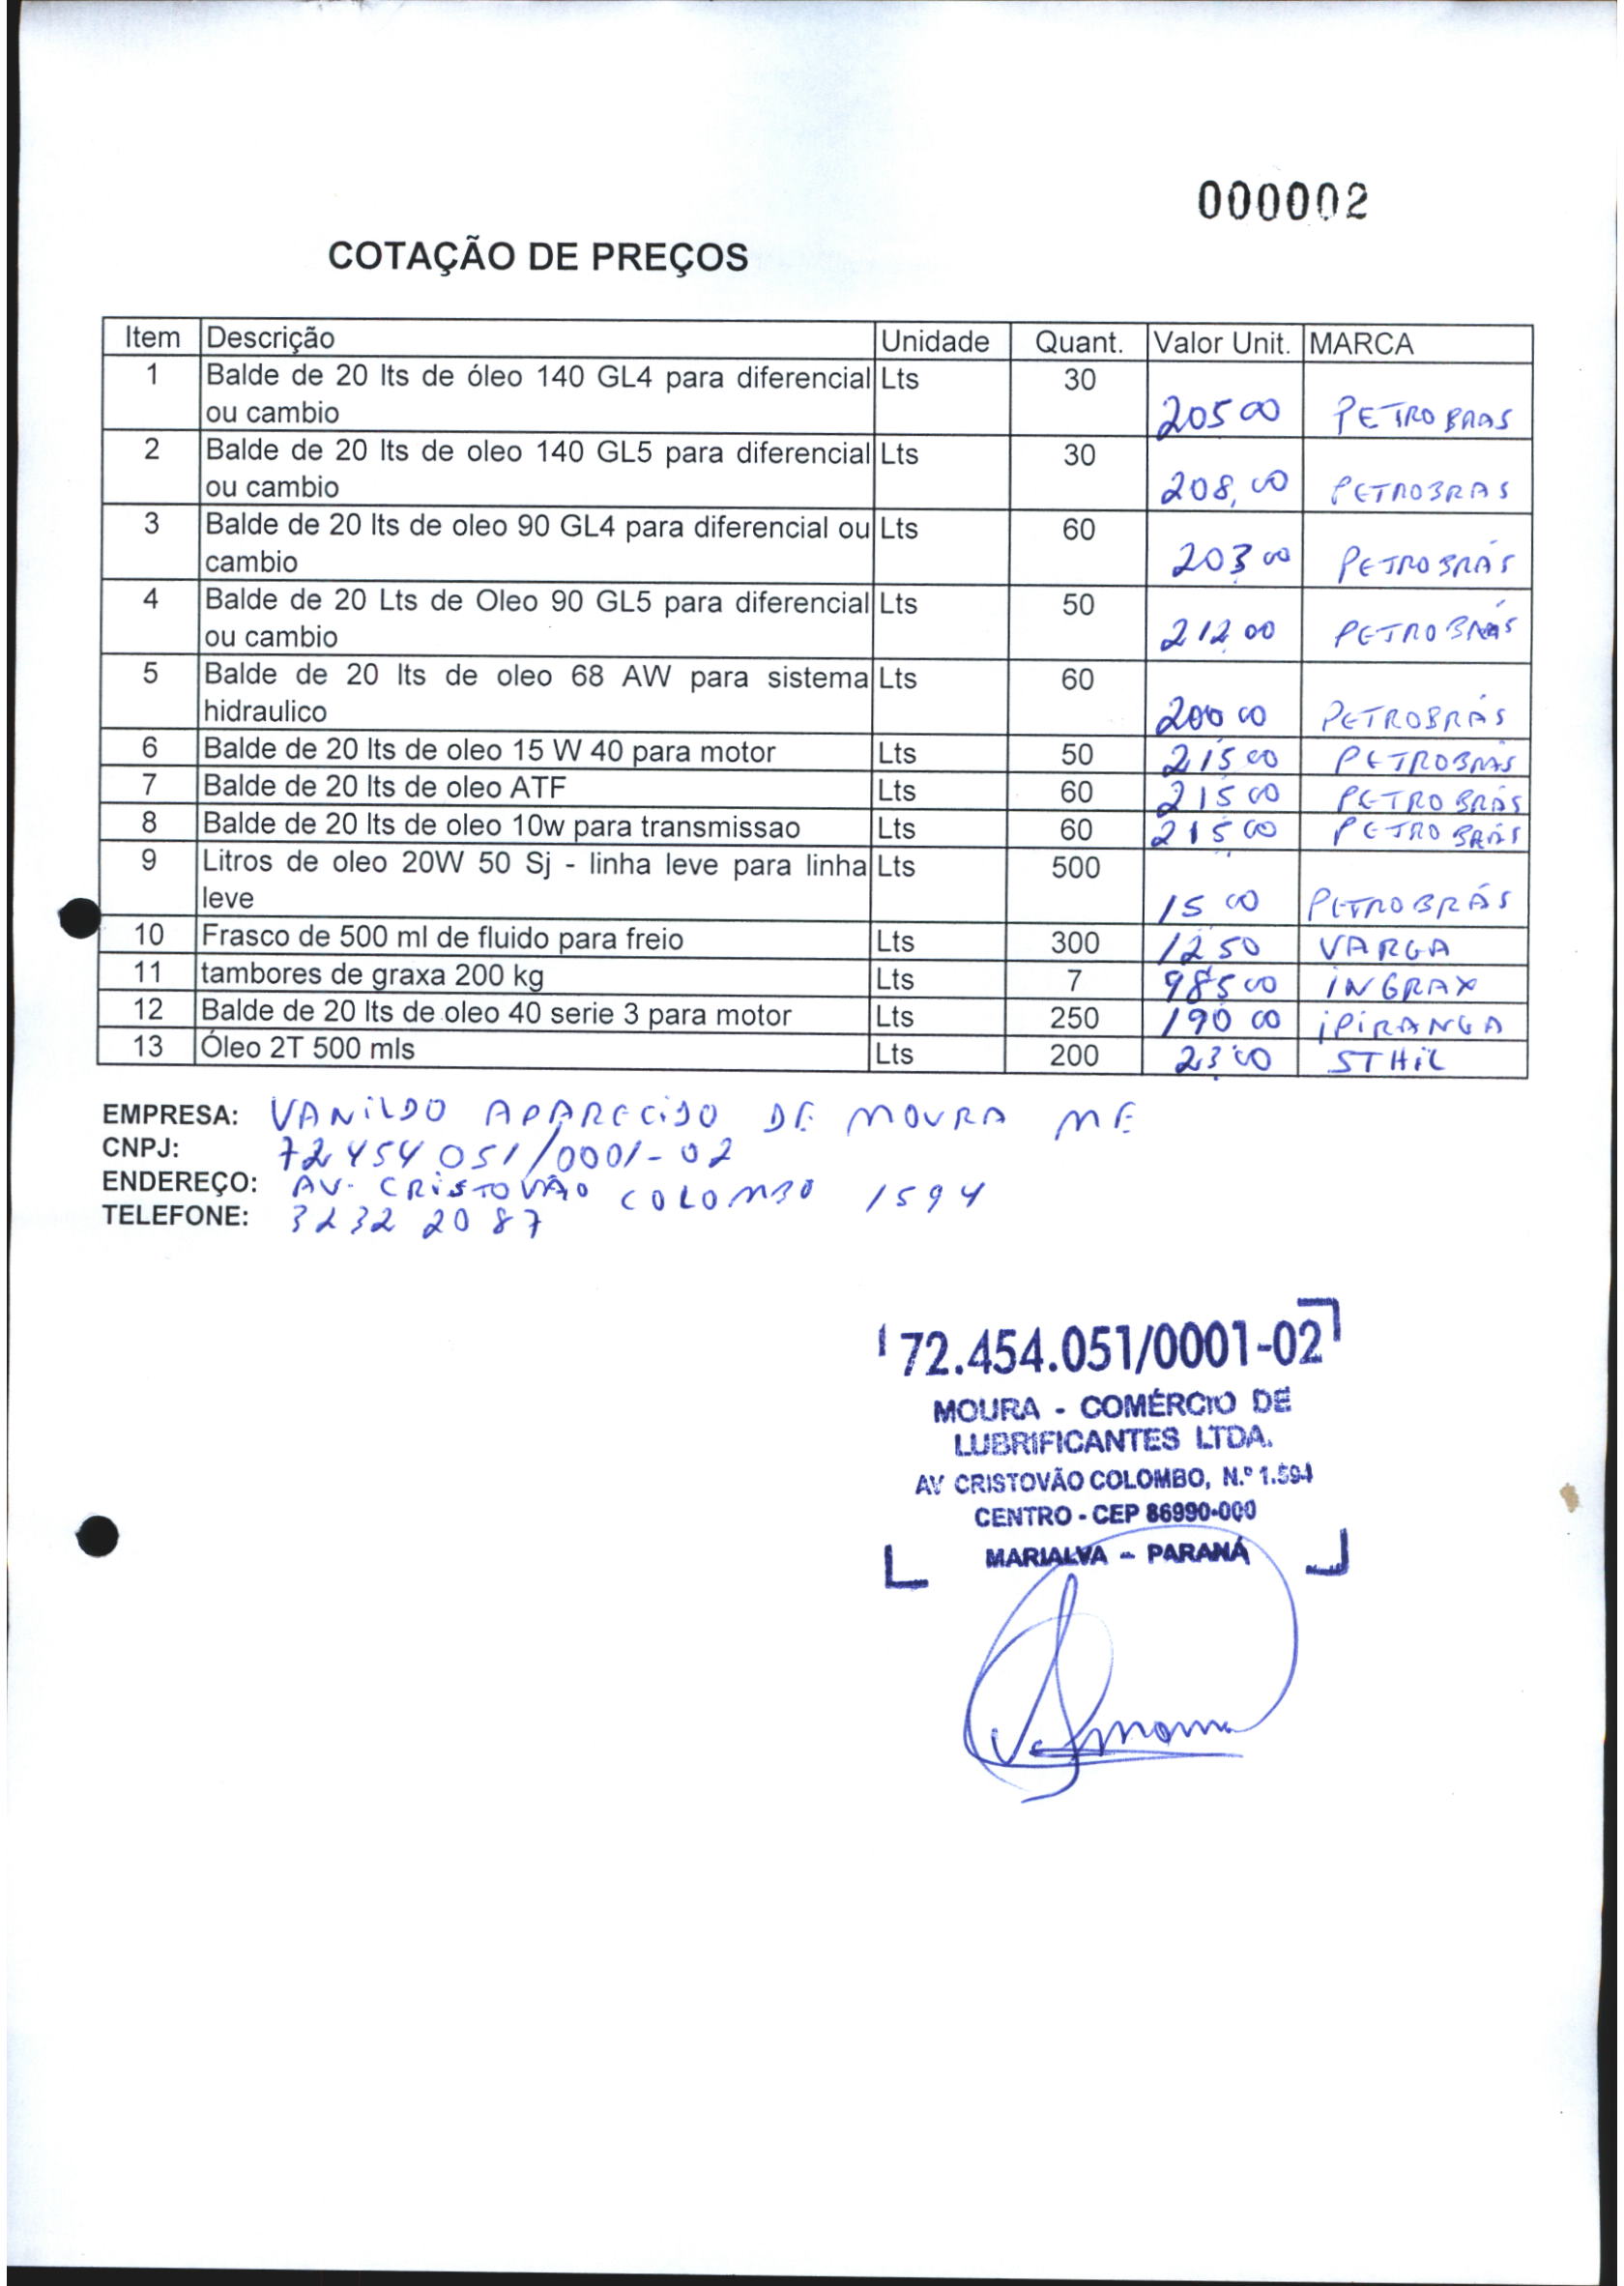 000002
COTAÇÃO DE PREÇOS
Item Descrição Unidade Quant. Valor Unit. MARCA
1 Balde de 20 lts de óleo 140 GL4 para diferencial Lts 30
ou cambio 205 00 PETROBRAS
2 Balde de 20 lts de oleo 140 GL5 para diferencial Lts 30
ou cambio 208,00 PETROBRAS
3 Balde de 20 lts de oleo 90 GL4 para diferencial ou Lts 60
cambio 203 00 PETROBRÁS
4 Balde de 20 Lts de Oleo 90 GL5 para diferencial Lts 50
ou cambio 212 00 PETROBRÁS
5 Balde de 20 lts de oleo 68 AW para sistema Lts 60
hidraulico 200 00 PETROBRÁS
6 Balde de 20 lts de oleo 15 W 40 para motor Lts 50 215 00 PETROBRÁS
7 Balde de 20 lts de oleo ATF Lts 60 215 00 PETROBRÁS
8 Balde de 20 lts de oleo 10w para transmissao Lts 60 215,00 PETROBRÁS
9 Litros de oleo 20W 50 Sj - linha leve para linha Lts 500
leve 15 00 PETROBRÁS
10 Frasco de 500 ml de fluido para freio Lts 300 12 50 VARGA
11 tambores de graxa 200 kg Lts 7 985 00 INGRAX
12 Balde de 20 lts de oleo 40 serie 3 para motor Lts 250 190 00 iPiRANGA
13 Óleo 2T 500 mls Lts 200 23 00 STHiL
EMPRESA: VANiLDO APARECiDO DE MOURA ME
CNPJ: 72 454 051/0001-02
ENDEREÇO: AV. CRiSTOVÃO COLOMBO 1594
TELEFONE: 3232 2087
72.454.051/0001-02
MOURA - COMÉRCIO DE
LUBRIFICANTES LTDA.
AV CRISTOVÃO COLOMBO, N.º 1.594
CENTRO - CEP 86990-000
MARIALVA - PARANÁ